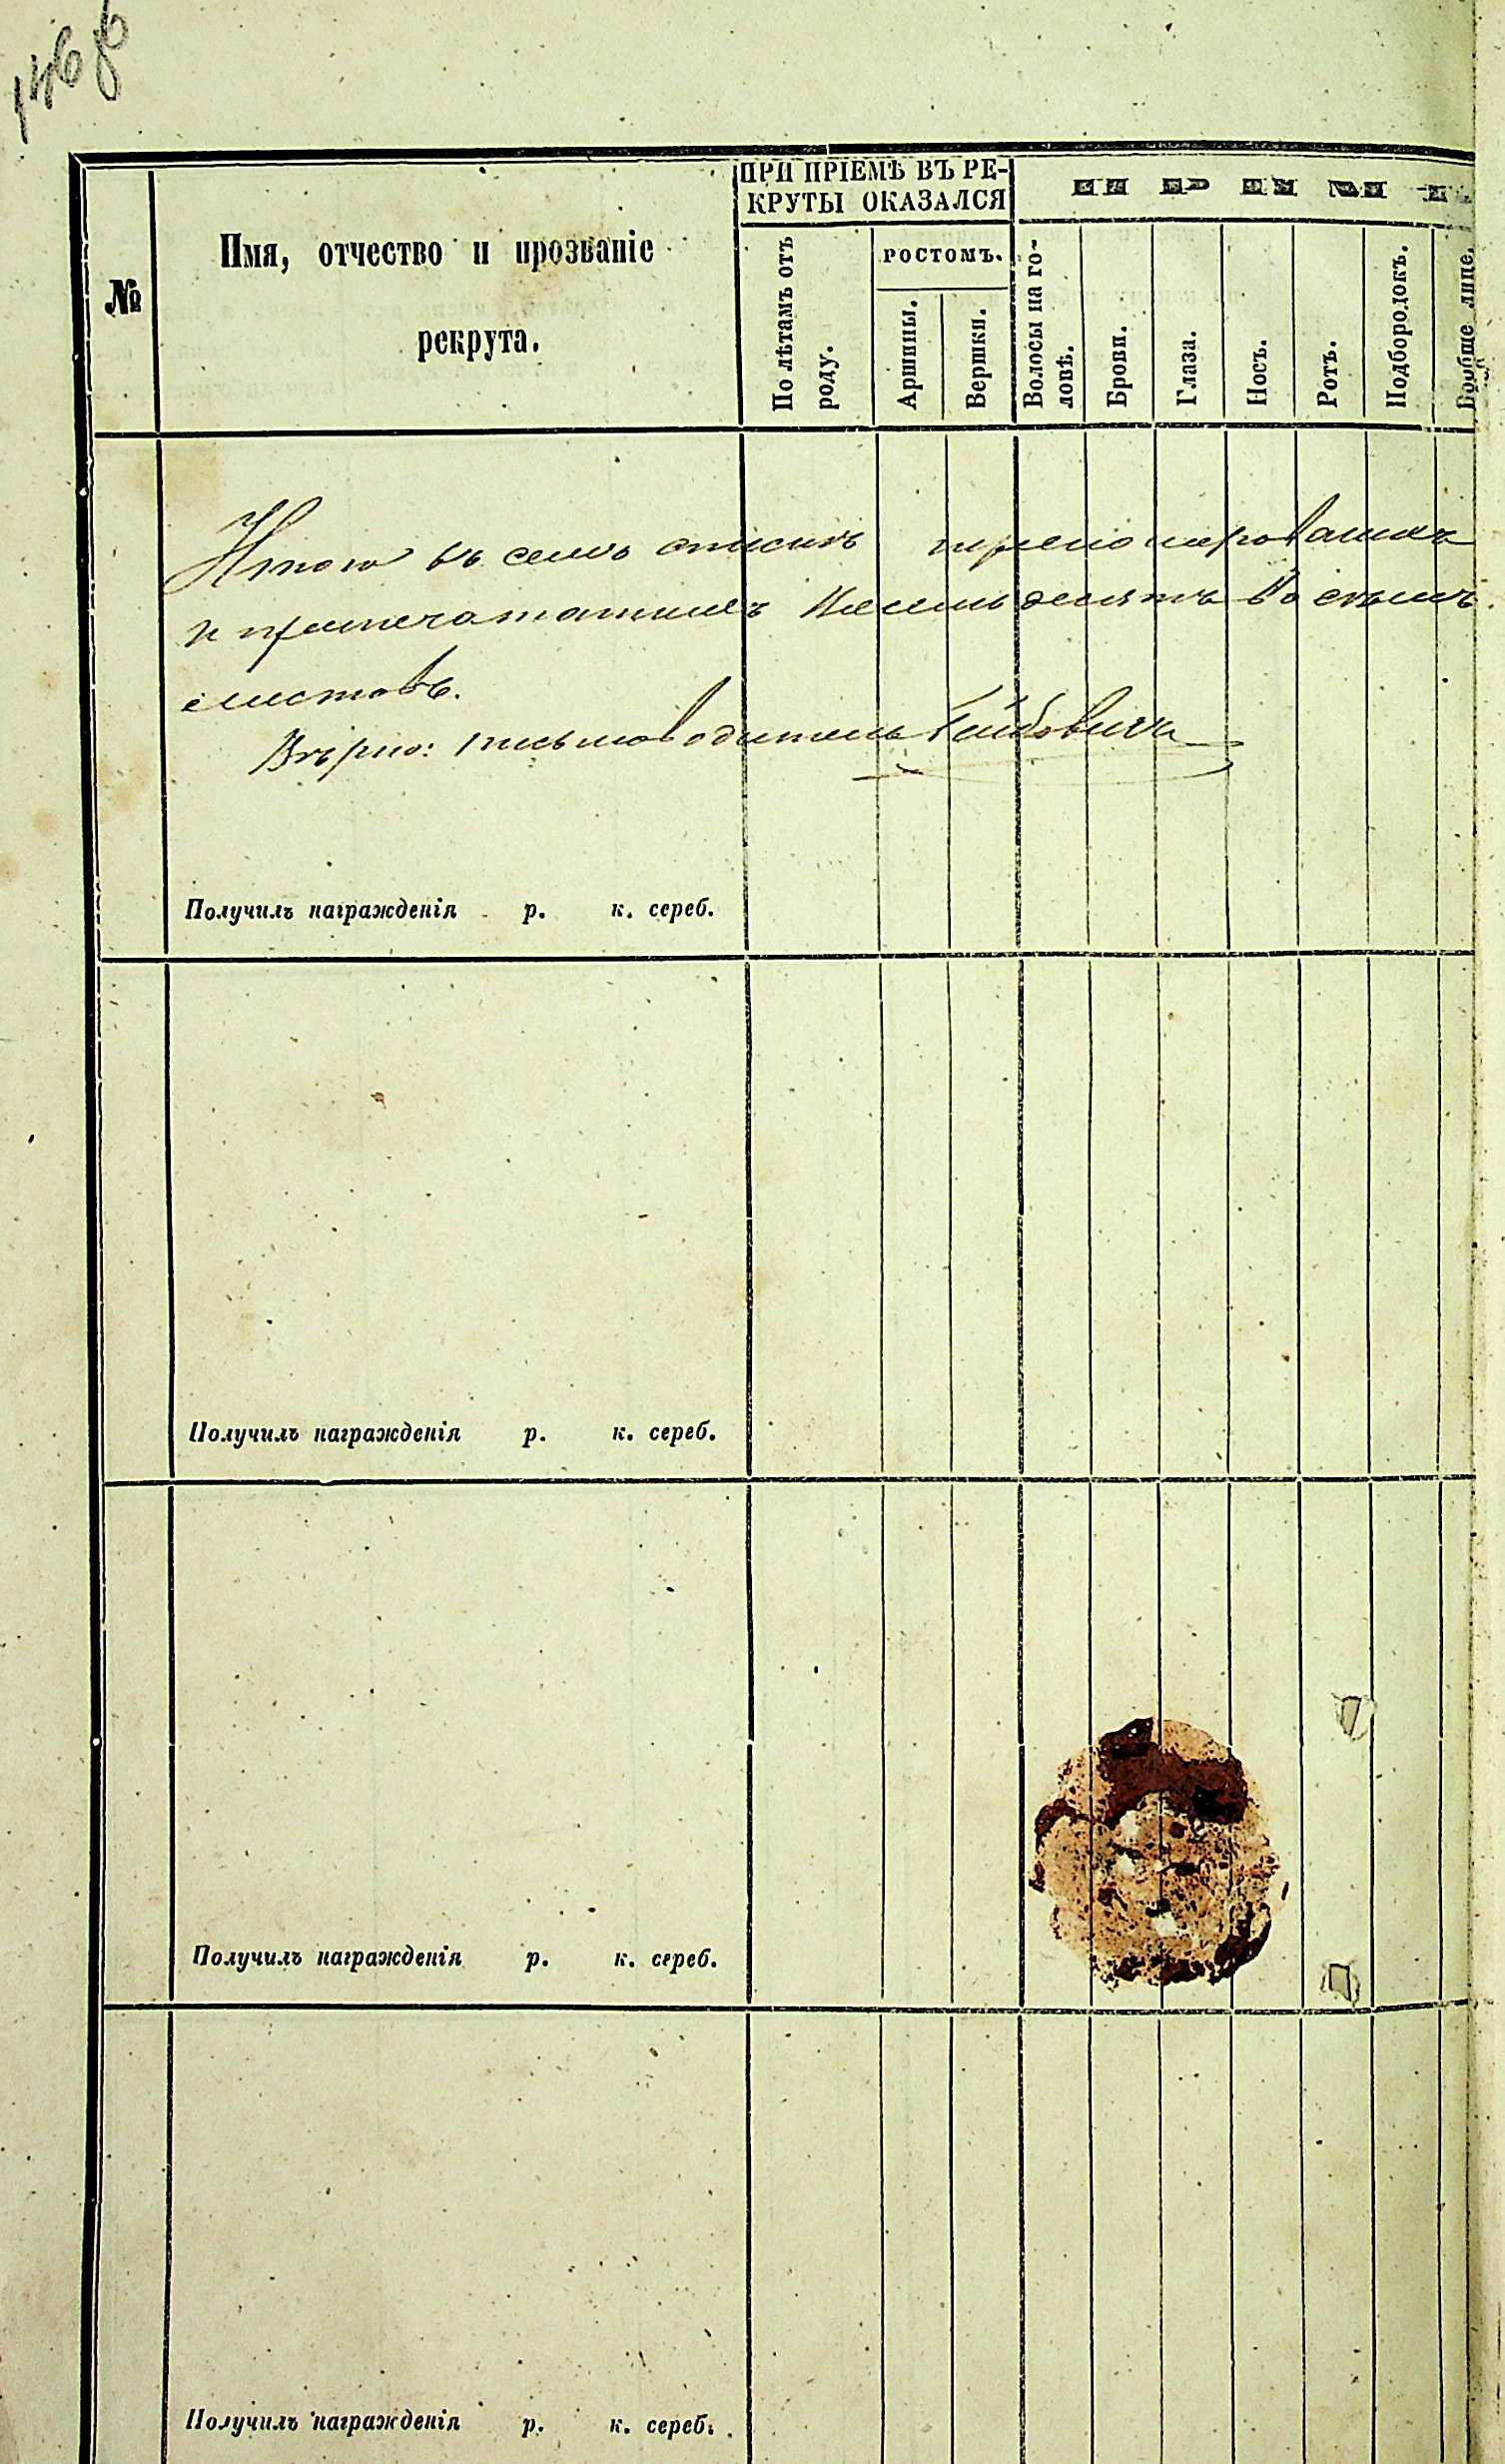 146 об
ПРИ ПРІЕМѢ ВЪ РЕ-
КРУТЫ ОКАЗАЛСЯ
ПРИМ
№
Имя, отчество и прозваніе
рекрута.
По лѣтамъ отъ
роду.
РОСТОМЪ.
Аршины.
Вершки.
Волосы на го-
ловѣ.
Брови.
Глаза.
Носъ.
Ротъ.
Подбородокъ.
Вообще лице.
Итого въ семъ спискѣ перенумерованныхъ
и припечатанныхъ восемьдесятъ восемь
листовъ.
Вѣрно: письмоводитель
Получилъ награжденія р. к. сереб.
Получилъ награжденія р. к. сереб.
Получилъ награжденія р. к. сереб.
Получилъ награжденія р. к. сереб.